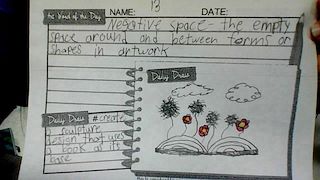 Art Word of the Day
NAME: 13 DATE:
Negative space- the empty
space around and between forms or
shapes in artwork
Daily Draw
Daily Draw #create
a sculpture
design that uses
a book as its
base